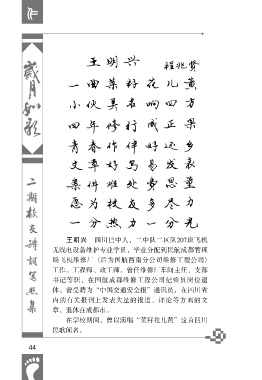 作
岁月如歌
二期校友诗词写照集
王明兴
程兆贤
一曲菜籽花儿黄
小伙美名响四方
四年修行成正果
青春作伴好还乡
文章好写易发表
案件难处费思量
愿为校友多尽力
一分热力一分光
王明兴 四川巴中人，二中队二区队207班飞机
无线电设备维护专业学员，毕业分配到民航成都管理
局飞机维修厂（后为民航西南分公司维修工程公司）
工作。工程师、政工师。曾任维修厂车间主任、支部
书记等职，在民航成都维修工程公司纪检员岗位退
休。曾受聘为“中国交通安全报”通讯员，在四川省
内的有关报刊上发表大量的报道、评论等方面的文
章。退休在成都市。
在学校期间，曾以演唱“菜籽花儿黄”这首四川
民歌闻名。
44